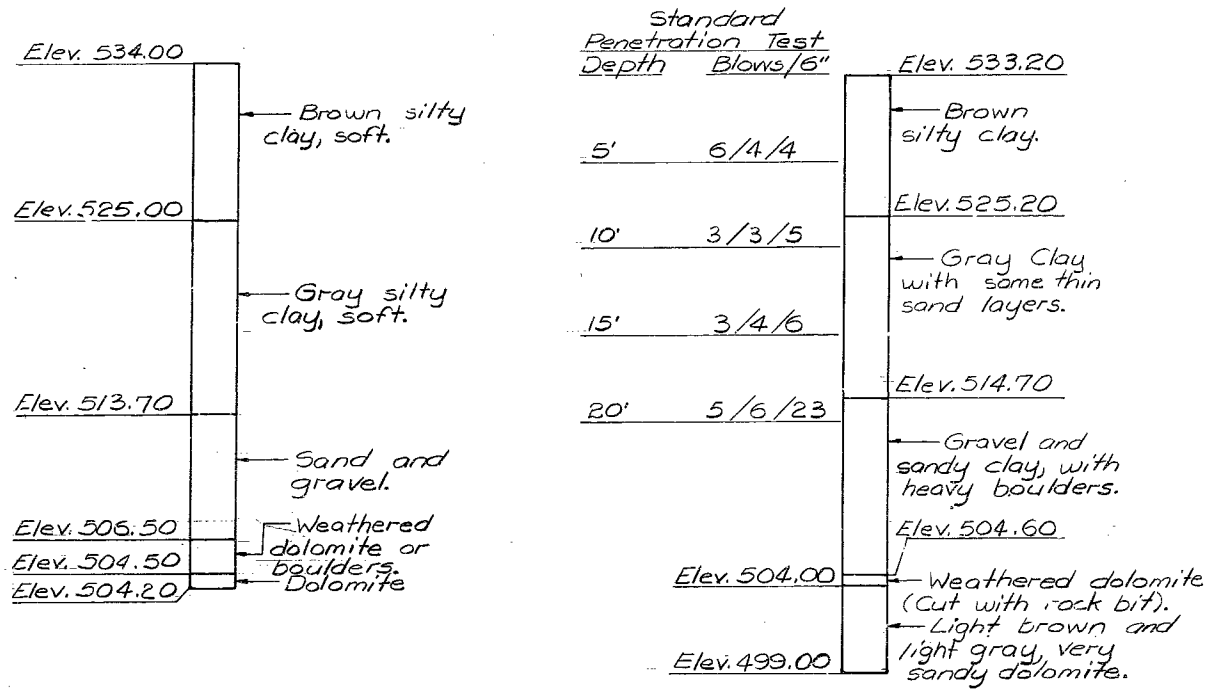 Elev. 534.00
Brown silty
clay, soft.
Elev. 525.00
Gray silty
clay, soft.
Elev. 513.70
Sand and
gravel.
Elev. 506.50
Weathered
dolomite or
boulders.
Elev. 504.50
Dolomite
Elev. 504.20
Standard
Penetration Test
Depth Blows/6"
5' 6/4/4
10' 3/3/5
15' 3/4/6
20' 5/6/23
Elev. 533.20
Brown
silty clay.
Elev. 525.20
Gray Clay
with some thin
sand layers.
Elev. 514.70
Gravel and
sandy clay, with
heavy boulders.
Elev. 504.60
Elev. 504.00
Weathered dolomite
(Cut with rock bit).
Light brown and
light gray, very
sandy dolomite.
Elev. 499.00